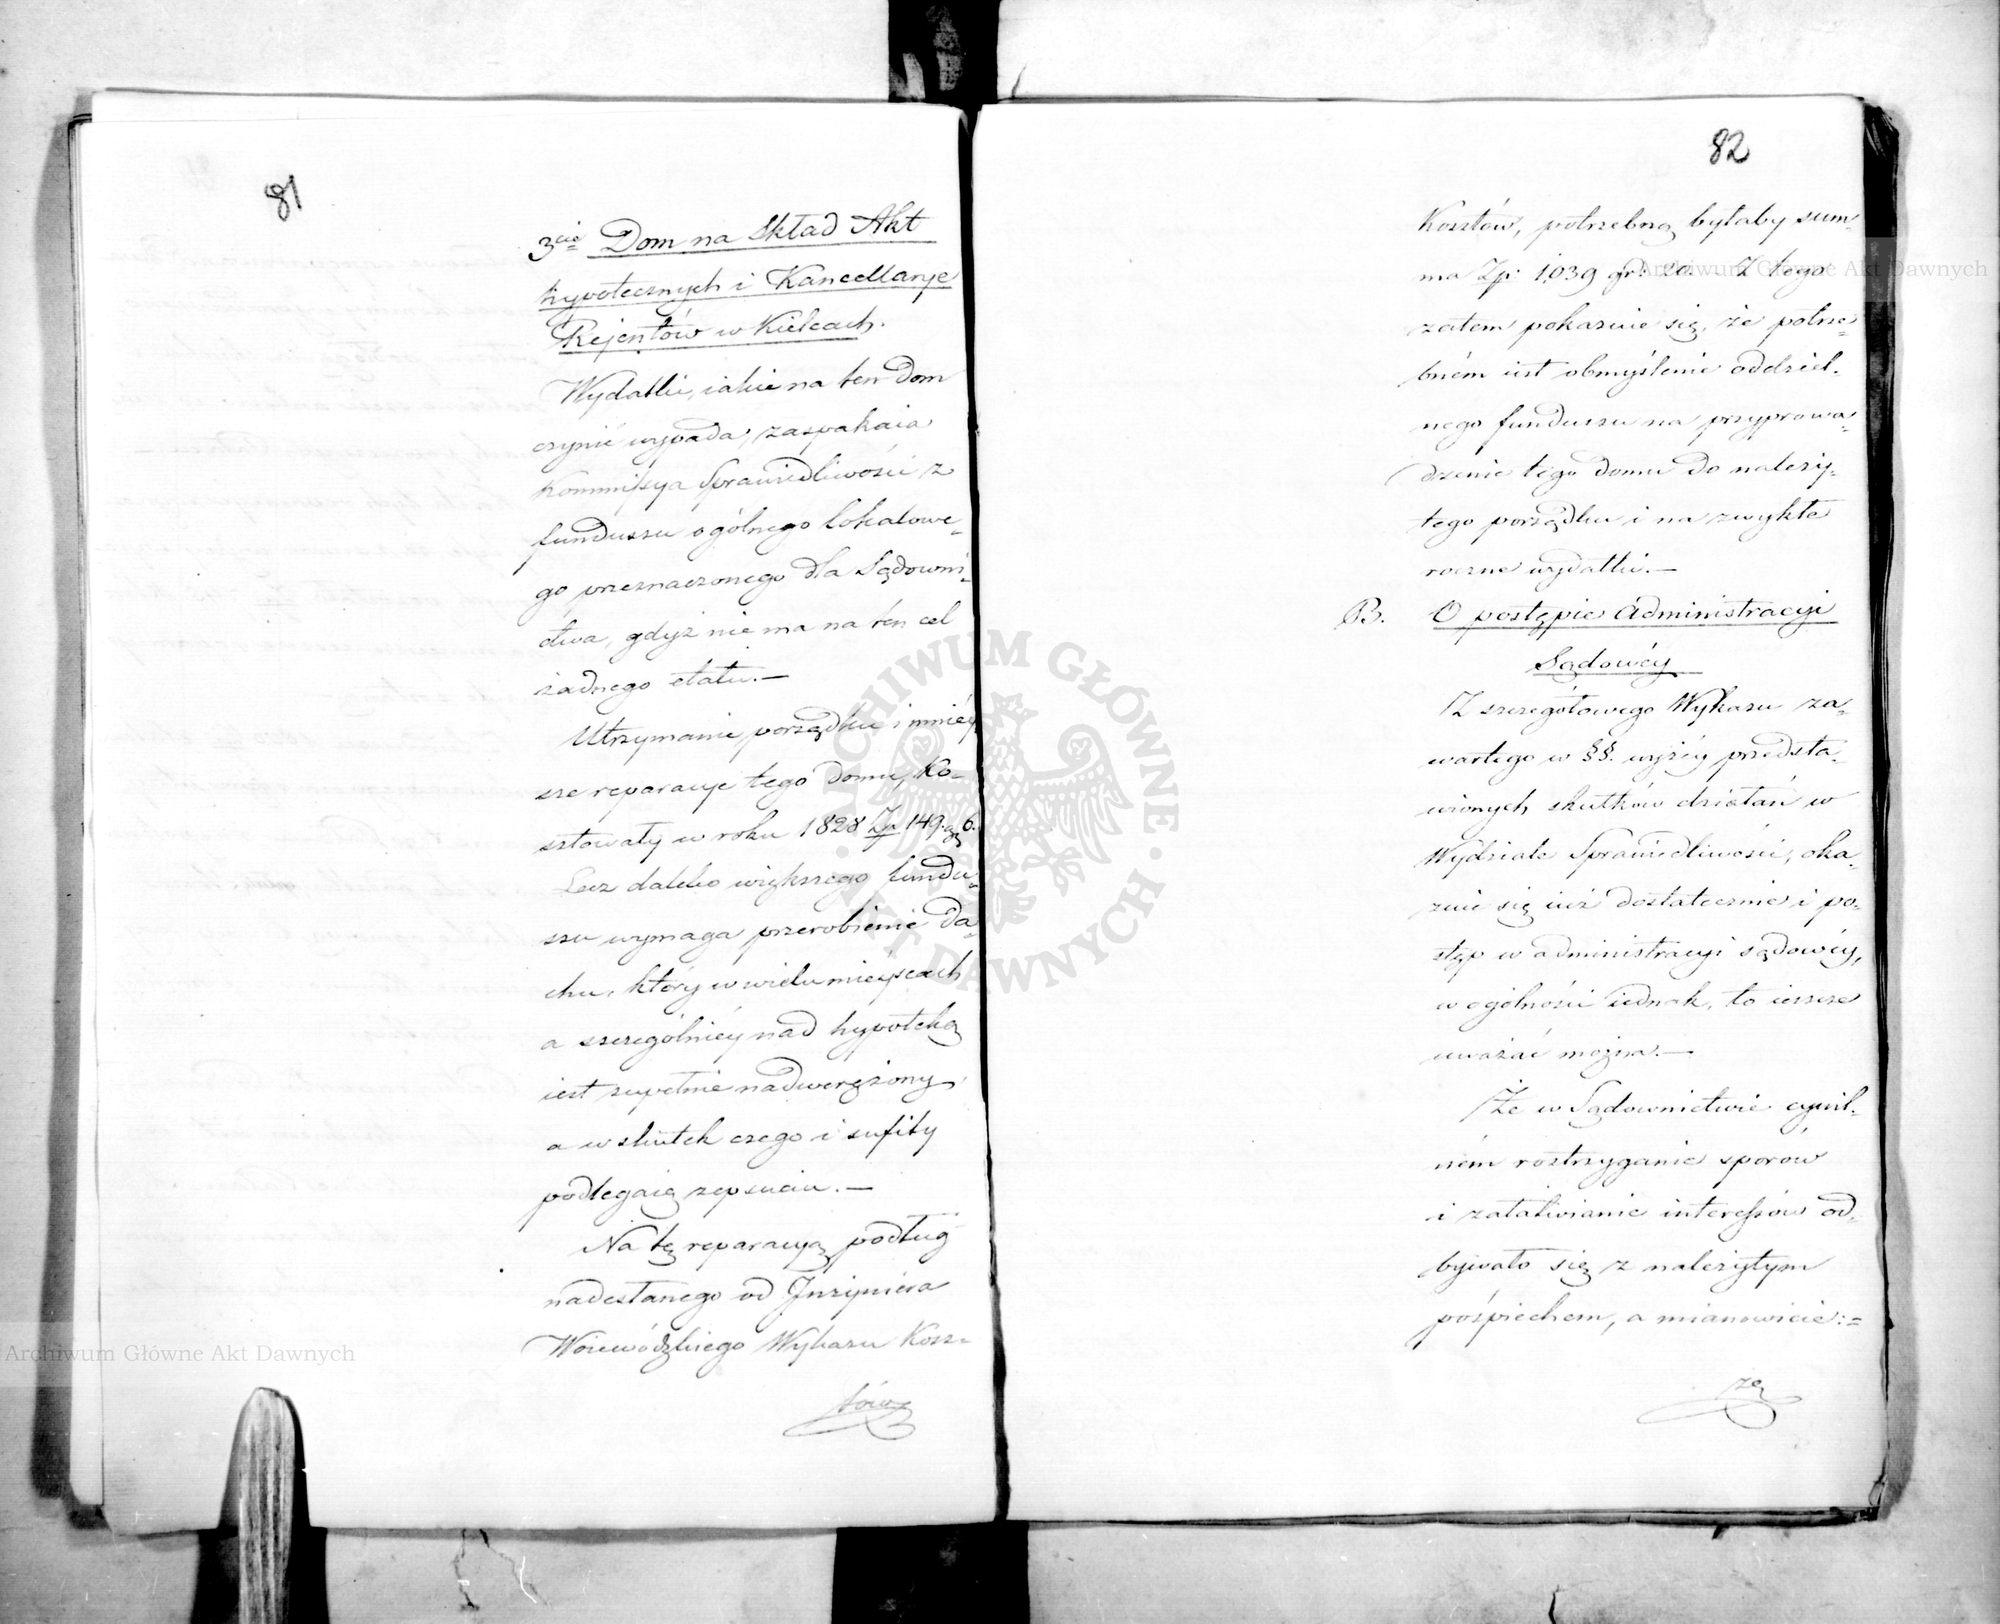 81
3cie Dom na Skład Akt
hypotecznych i Kancellarye
Rejentów w Kielcach.
Wydatki, iakie na ten Dom
czynić wypada, zaspakaia
Kommissya Sprawiedliwości z
funduszu ogólnego lokalowe=
go przeznaczonego dla Sądowni=
ctwa, gdyż nie ma na ten cel
żadnego etatu.—
Utrzymanie porządku i mniey=
sze reparacye tego domu, Ko=
sztowały w roku 1828 Zp 149. gr 6.
Lecz daleko większego fundu=
szu wymaga przerobienie Da=
chu, który w wielu mieyscach
a szczególniéy nad hypoteką
iest zupełnie nadwerężony,
a w skutek czego i sufity
podlegaią zepsuciu.—
Na tę reparacyą podług
nadesłanego od Inżyniera
Woiewódzkiego Wykazu Kosz=
tów
82
Kosztów, potrzebną byłaby sum=
ma Zp: 1,039 gr: 20. Z tego
zatem pokazuie się, że potrze=
bném iest obmyślenie oddziel=
nego funduszu na przyprowa=
dzenie tego domu do należy=
tego porządku i na zwykłe
roczne wydatki.—
B. O postępie Administracyi
Sądowéy
Z szczegółowego Wykazu za=
wartego w §§. wyżéy przedsta=
wionych skutków działań w
Wydziale Sprawiedliwości, oka=
zuie się iuż dostatecznie i po=
stęp w administracyi sądowéy,
w ogólności iednak, to ieszcze
uważać można.—
Że w Sądownictwie cywil=
ném roztrzyganie sporów
i załatwianie interessów od=
bywało się z należytym
pośpiechem, a mianowicie:=
że
Archiwum Główne Akt Dawnych
Archiwum Główne Akt Dawnych
ARCHIWUM GŁÓWNE · AKT DAWNYCH ·